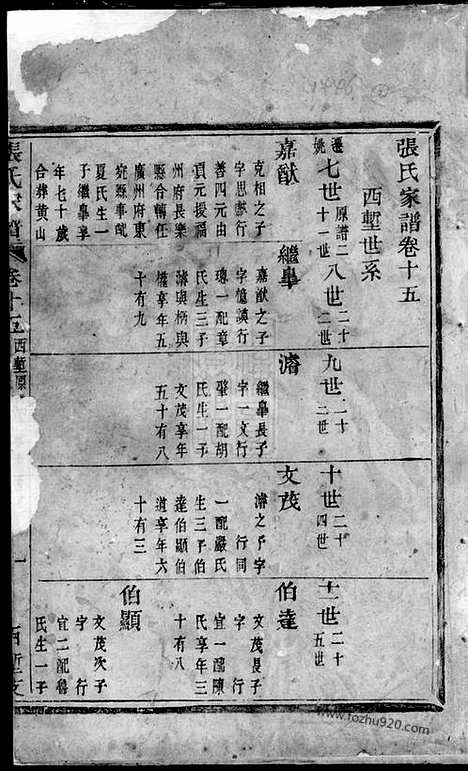 張氏家譜卷十五
西塹世系
遷姚七世原譜二十一世
嘉猷
克相之子
字思猷行
善四元由
貢元授福
州府長樂
縣令轉任
廣州府東
莞縣事配
夏氏生一
子繼臯享
年七十歲
合葬黄山
八世二十二世
繼臯
嘉猷之子
字憶謨行
璁一配章
氏生三子
濬與柄與
權享年五
十有九
九世二十三世
濬
繼臯長子
字一文行
肇一配胡
氏生一子
文茂享年
五十有八
十世二十四世
文茂
濬之子字
行同
一配嚴氏
生三子伯
達伯顯伯
道享年六
十有三
十一世二十五世
伯達
文茂長子
字 行
宜一配陳
氏享年三
十有八
伯顯
文茂次子
字 行
宜二配
氏生一子
張氏家譜 卷十五 西塹原
一
www.fozhu920.com